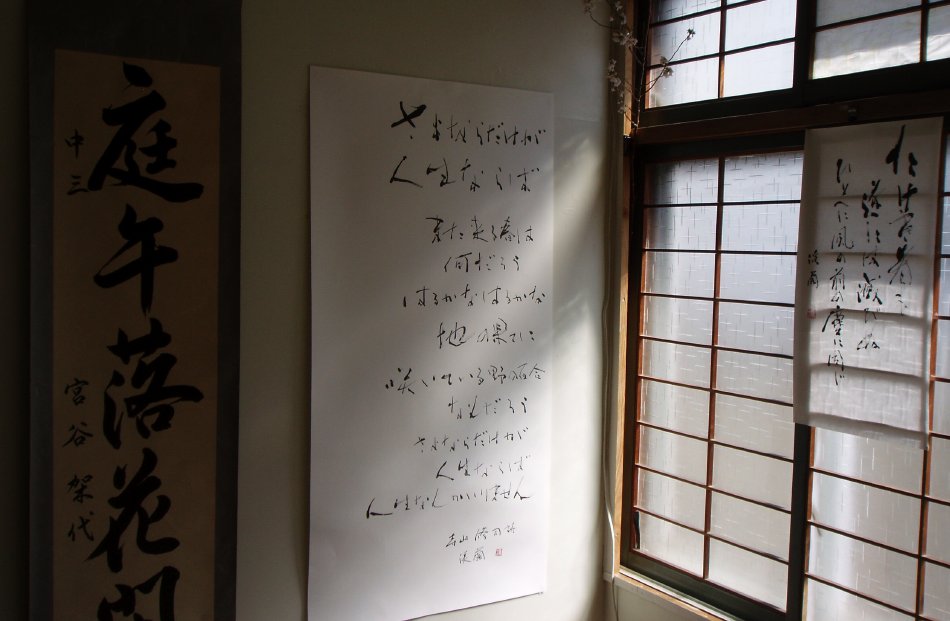 庭午落花
中三 宮谷架代
さよならだけが
人生ならば
また来る春は
何だろう
はるかなはるかな
地の果てに
咲いている野の百合
なんだろう
さよならだけが
人生ならば
人生なんかいりません
寺山修司 詩
渓蘭
たけき者も
遂には滅びぬ
ひとへに風の前の塵に同じ
渓蘭